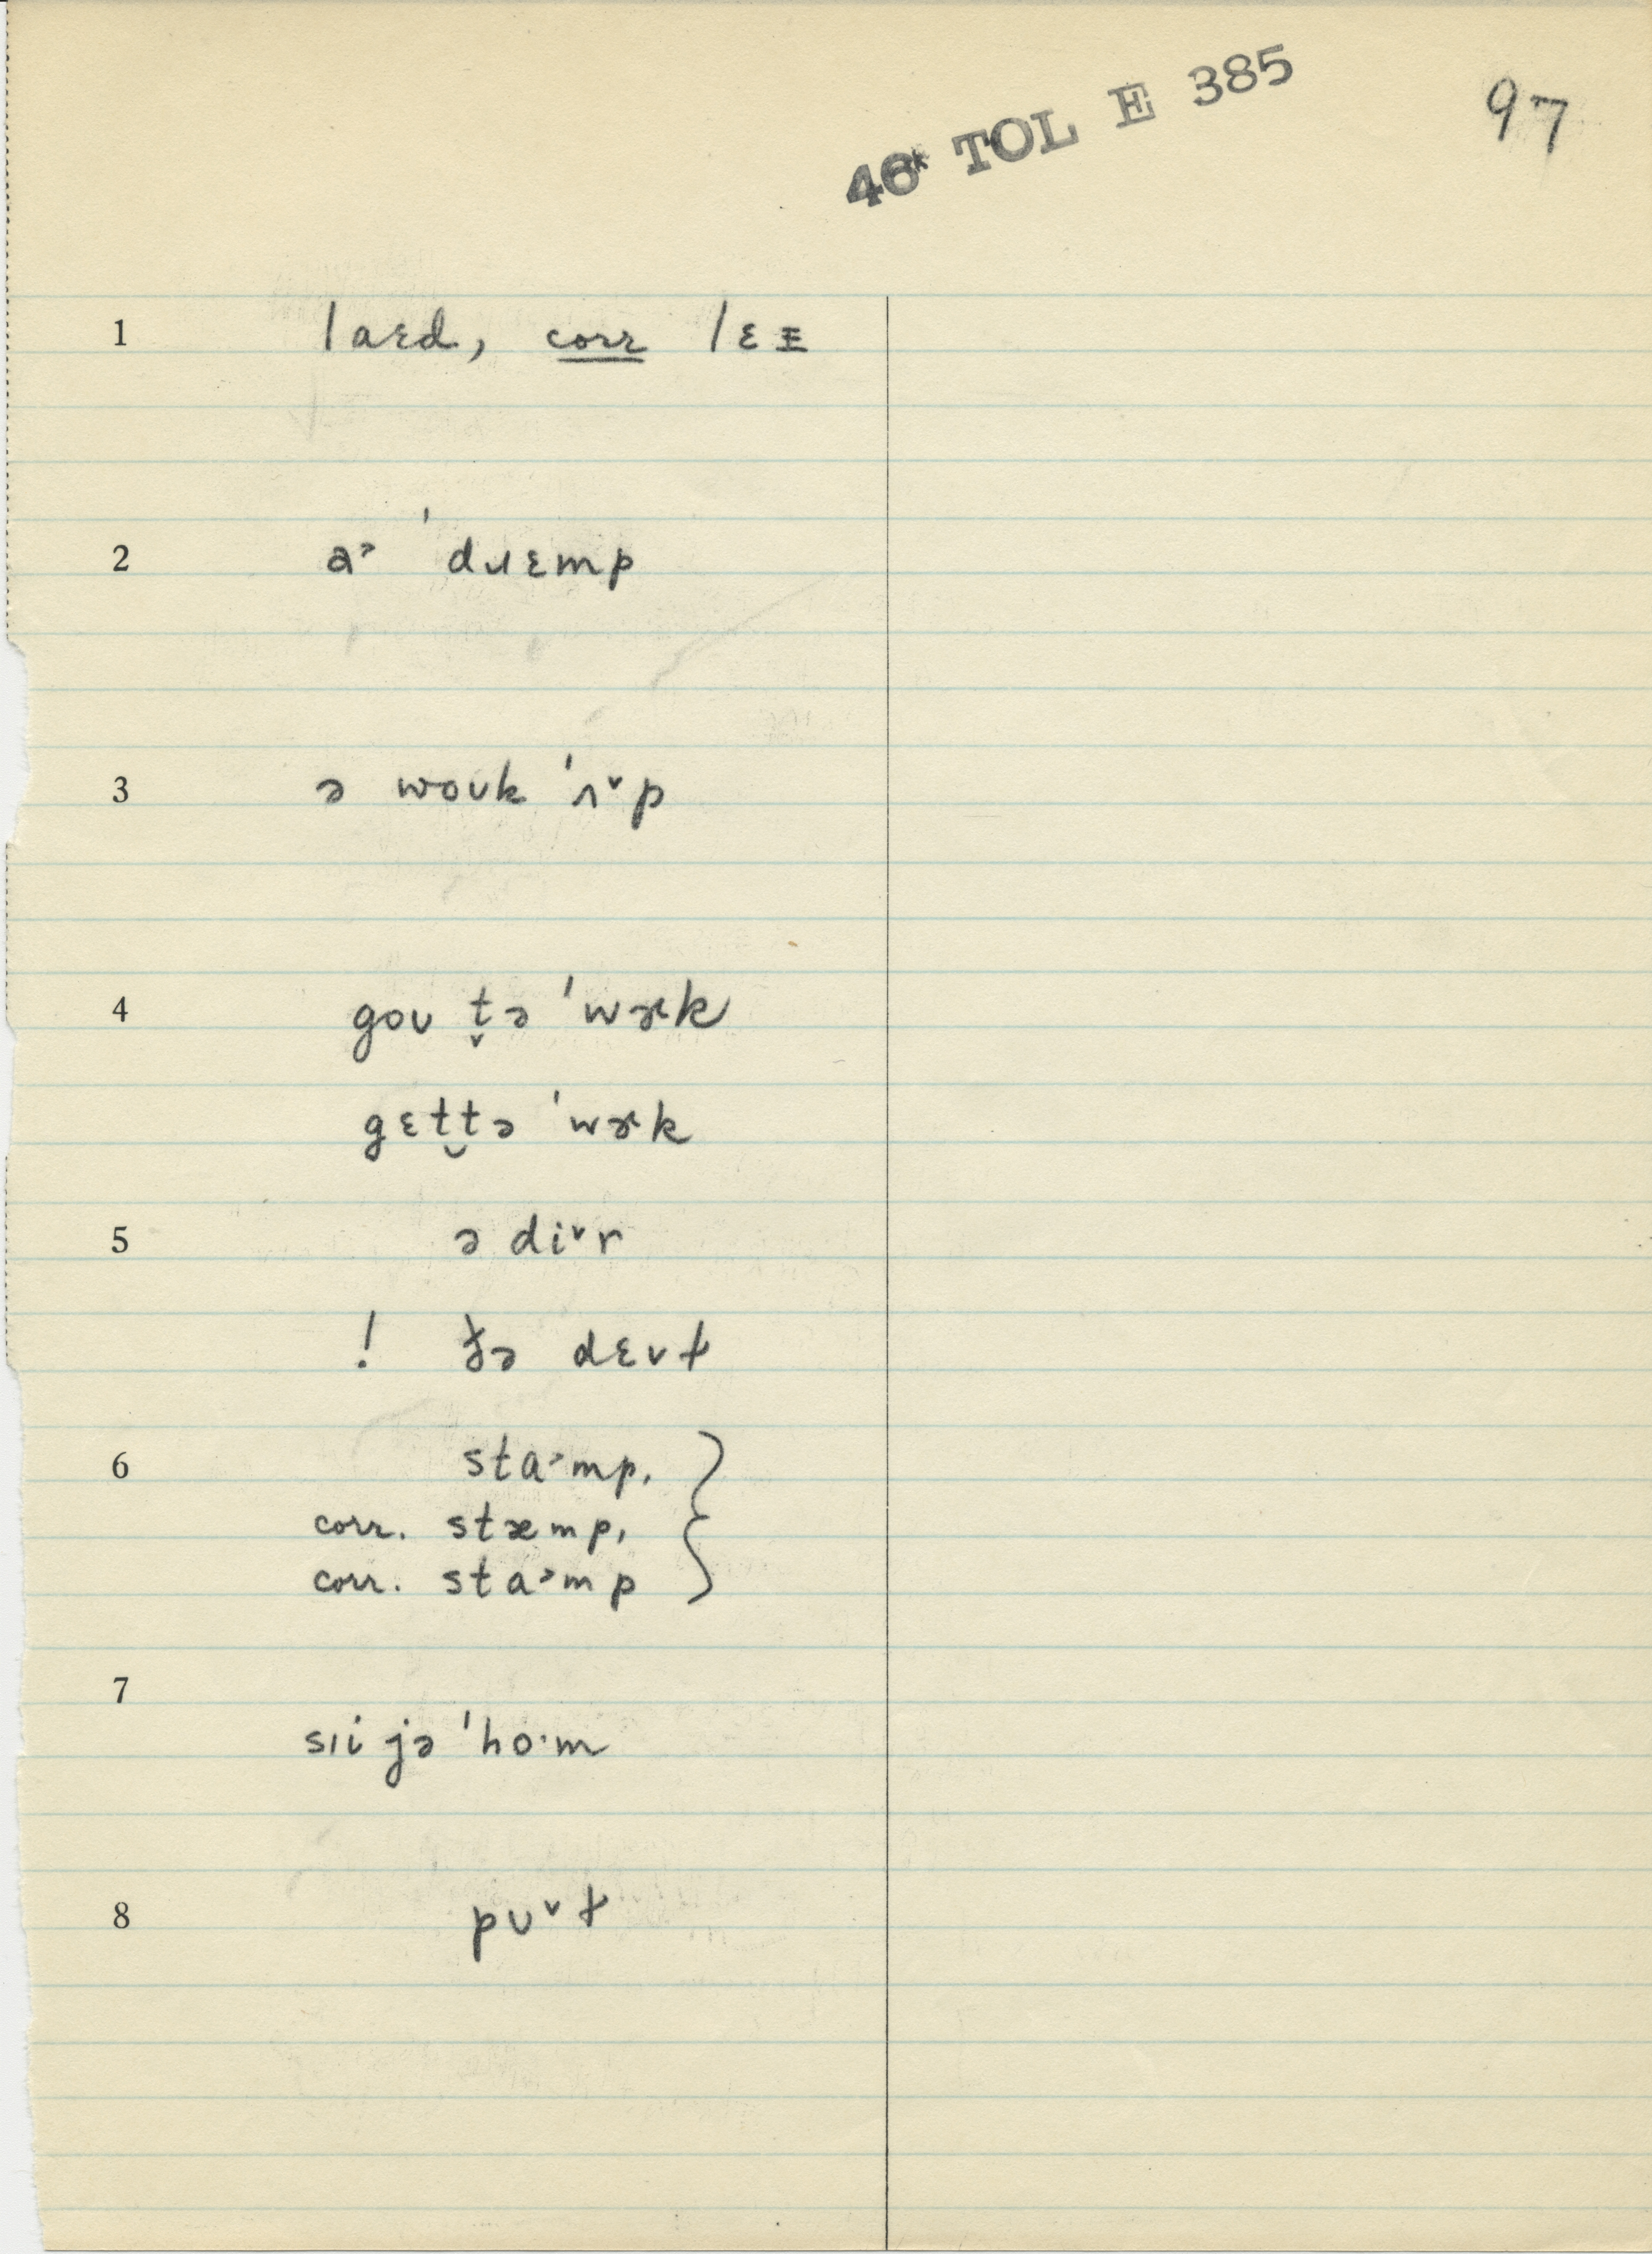 46* TOL E 385
97
1 laɛd, corr lɛᴇ
2 a˃ ˈdɹɛmp
3 ə woʊk ˈʌ˅p
4 goʊ t̬ə ˈwɚk
gɛt̮tə ˈwɚk
5 ə di˅r
! ðə dɛ˅ɫ
6 sta˃mp,
corr. stæmp,
corr. sta˃mp
7
sɪi jə ˈho·m
8 pʊ˅ɫ